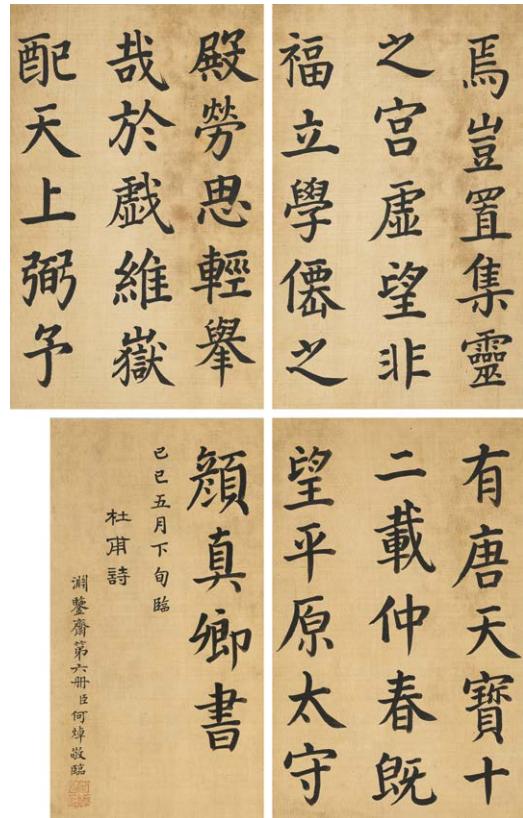 焉豈置集靈
之宮虛望非
福立學僊之
殿勞思輕舉
哉於戲維嶽
配天上弼予
有唐天寶十
二載仲春既
望平原太守
顏真卿書
己巳五月下旬臨
杜甫詩
淵鑒齋第六冊臣何焯敬臨